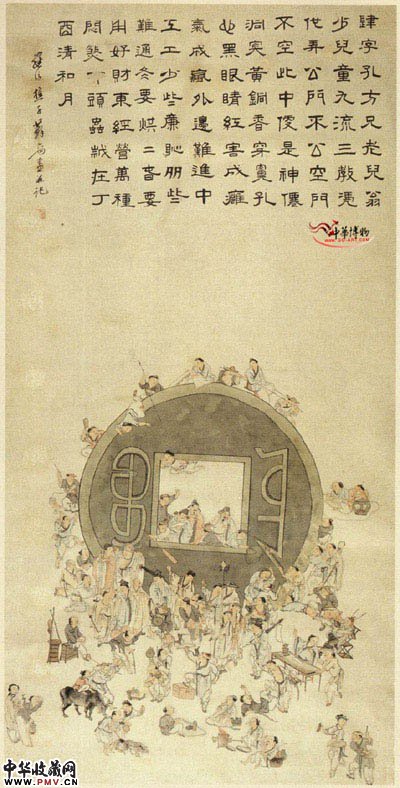 肆字孔方兄老兒翁
少兒童九流三教憑
他弄公門不公空門
不空此中便是神僊
洞穴黃銅香穿裏孔
黑眼睛紅害成癱
氣成瘋外邊難進中
工少些廉恥朋些
難通冬要烘二者要
用好財東經營萬種
悶煞頭蟲在丁
酉清和月
中华博物
中华收藏网
www.PMV.CN